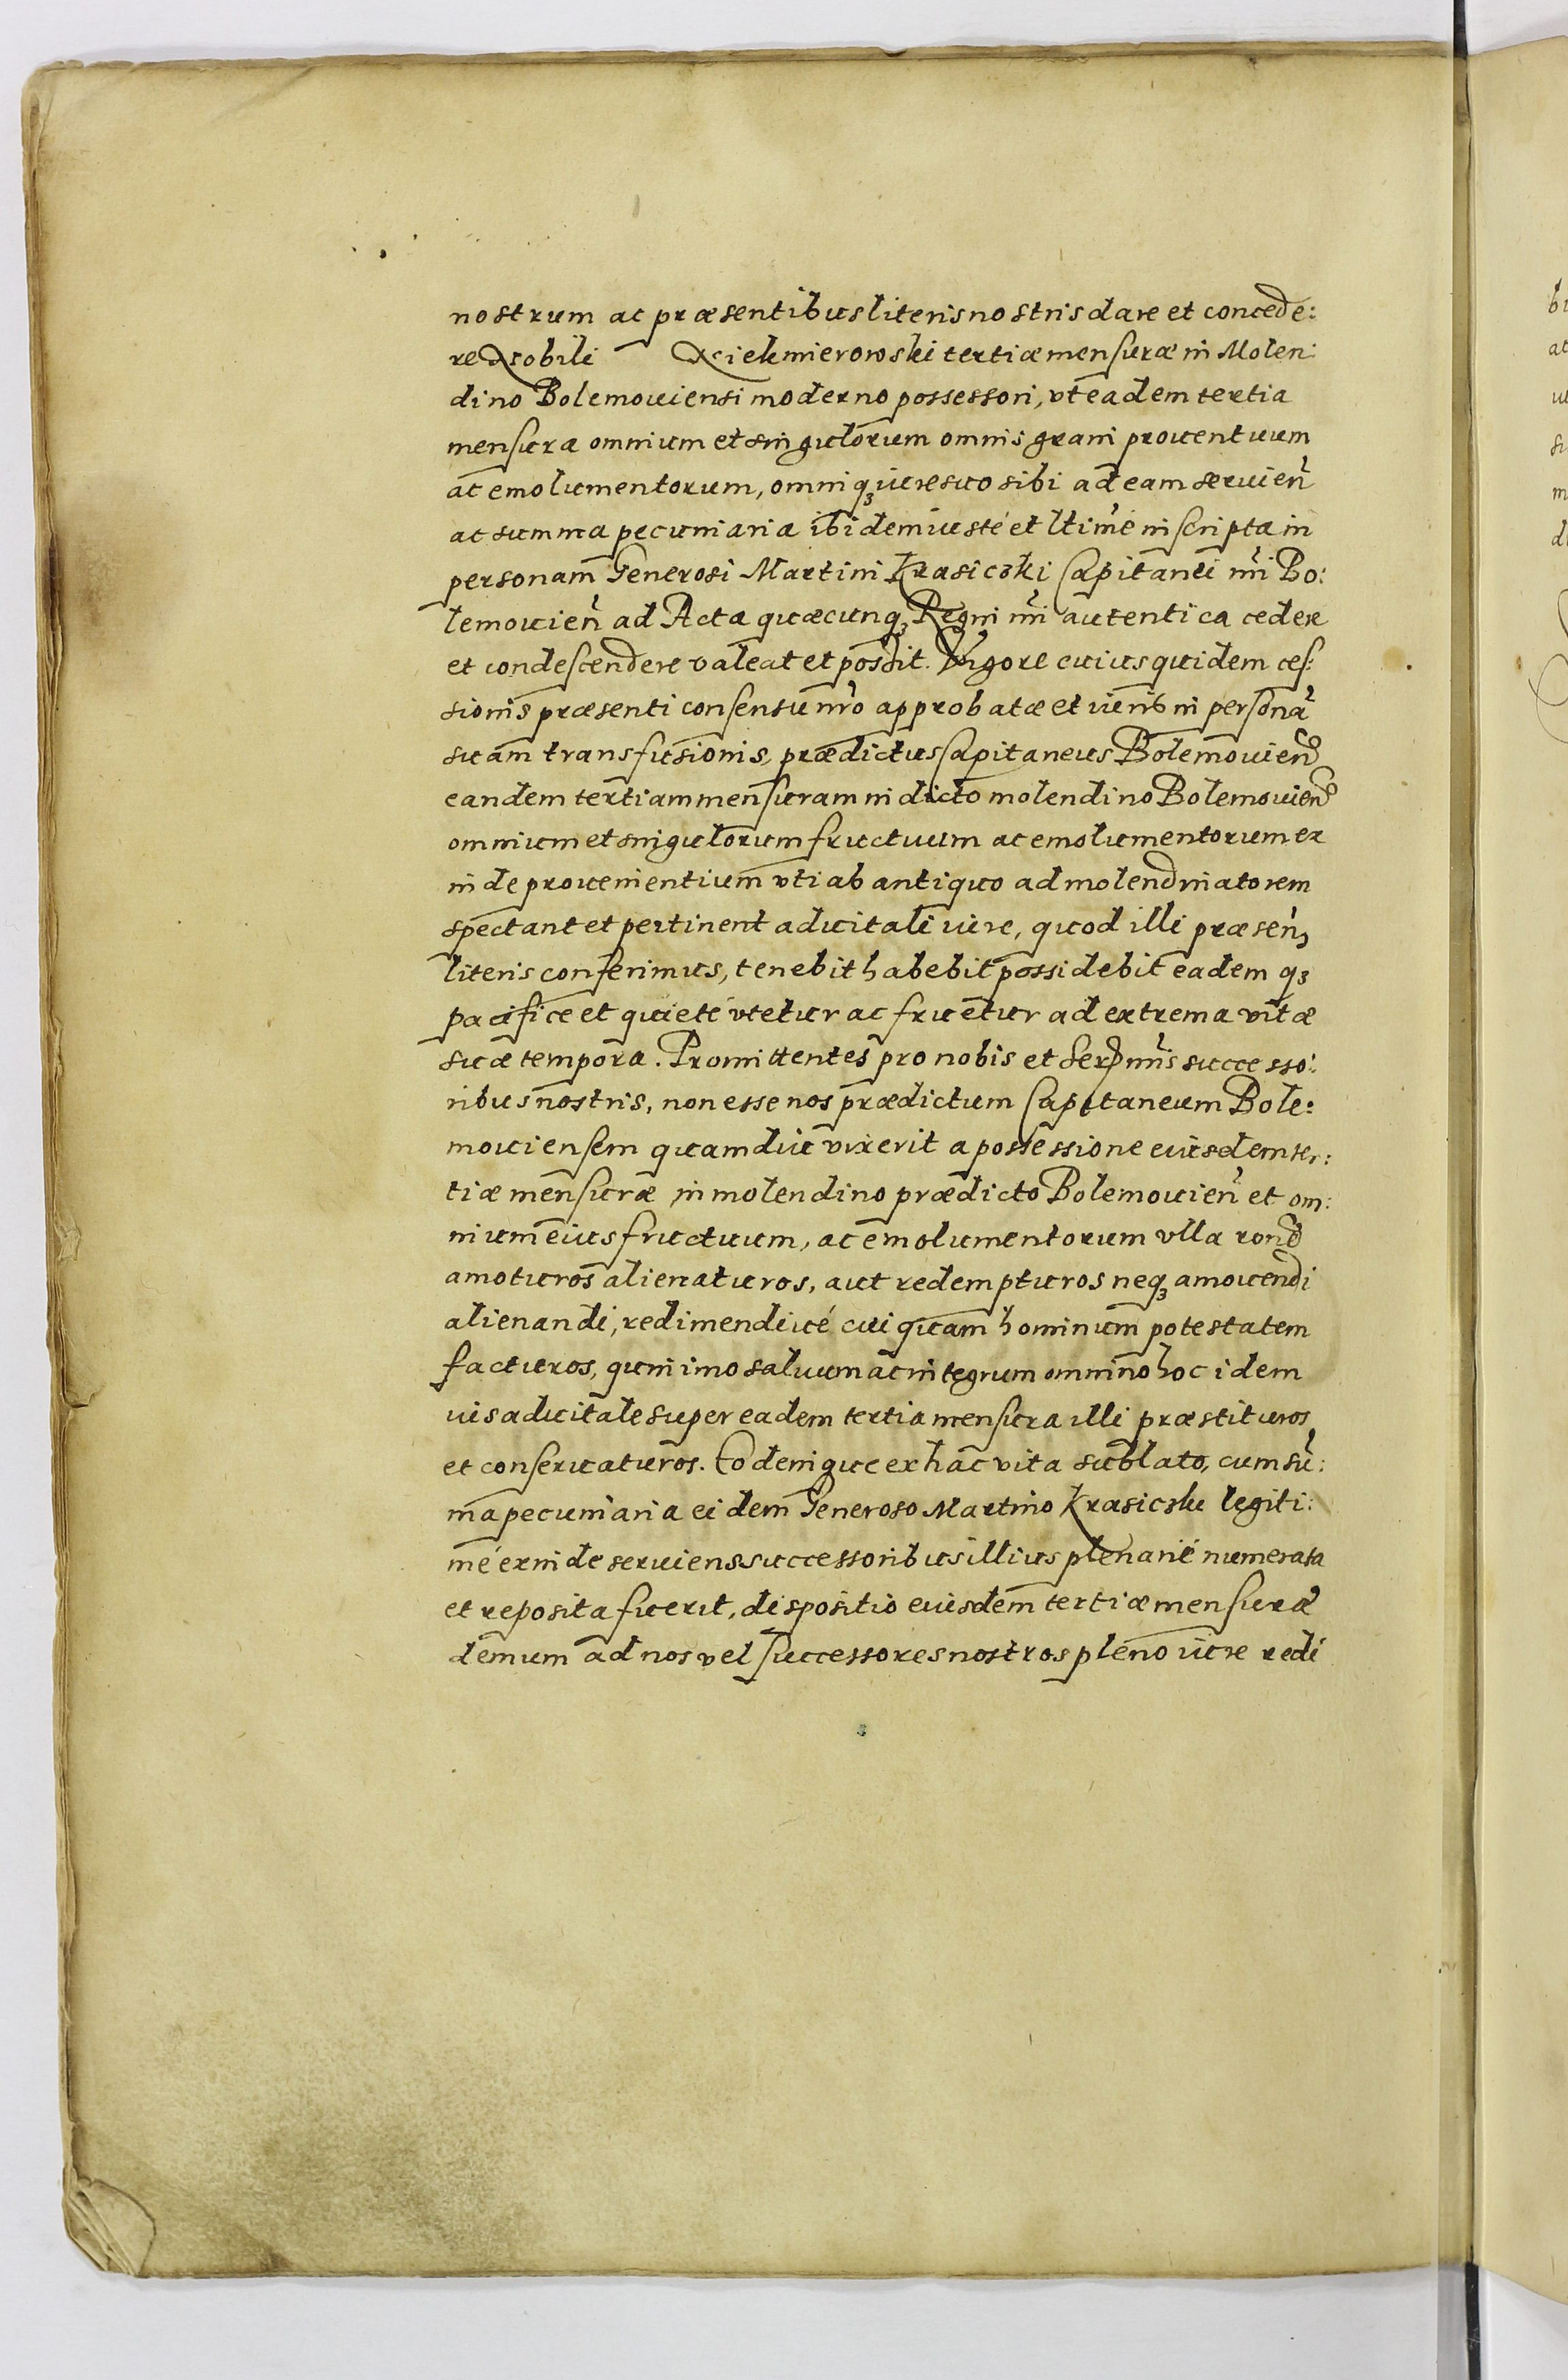 nostrum ac præsentibus literis nostris dare et concede:
re Nobili Niekmierowski tertiæ mensuræ in Molen:
dino Bolemouiensi moderno possessori, vt eadem tertia
mensura omnium et singulorum omnis grani prouentuum
ac emolumentorum, omniq₃ iure suo sibi ad eam seruien̄
ac summa pecuniaria ibidem iusté et ltimé inscripta in
personam Generosi Martini Krasicski Capitanei nri Bo:
lemouien̄ ad Acta quæcunq₃ Regni nri autentica cedere
et condescendere valeat et possit. Vigore cuiusquidem ces:
sionis præsenti consensu nro approbatæ et iuris in personā
suam transfusionis, prædictus Capitaneus Bolemouien̄
eandem tertiam mensuram in dicto molendino Bolemouien̄
omnium et singulorum fructuum ac emolumentorum ex
inde prouenientium vti ab antiquo ad molendinatorem
spectant et pertinent aduitali iure, quod illi præsen̄
literis conferimus, tenebit habebit possidebit eademq₃
pacifice et quieté vtetur ac fruetur ad extrema vitæ
suæ tempora. Promittentes pro nobis et Sermis successo:
ribus nostris, non esse nos prædictum Capitaneum Bole:
mouiensem quamdiu vixerit a possessione eiusdem ter:
tiæ mensuræ in molendino prædicto Bolemouien̄ et om:
nium eius fructuum, ac emolumentorum vlla rone
amoturos alienaturos, aut redempturos neq₃ amouendi
alienandi, redimendiué cuiquam hominum potestatem
facturos, quin imo saluum ac integrum omnino hoc idem
ius aduitale super eadem tertia mensura illi præstituros
et conseruaturos. Eo denique ex hac vita sublato, cum sū:
ma pecuniaria eidem Generoso Martino Krasicski legiti:
mé exinde seruiens successoribus illius plenarié numerata
et reposita fuerit, dispositio eiusdem tertiæ mensuræ
demum ad nos vel successores nostros pleno iure redi